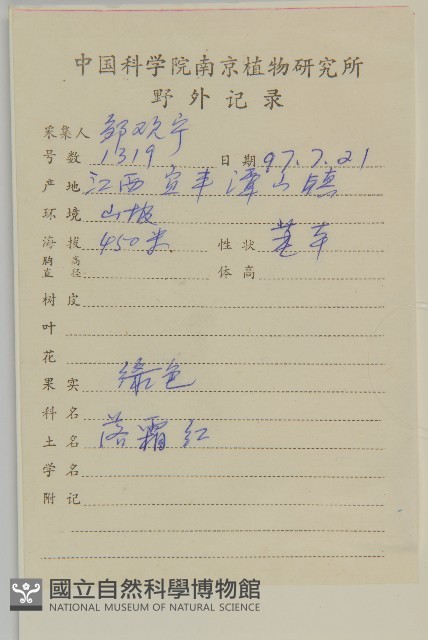 中国科学院南京植物研究所
野外记录
采集人 邹观宁
号数 1319 日期 97.7.21
产地 江西宜丰潭山镇
环境 山坡
海拔 450米 性状 草本
胸高直径 体高
树皮
叶
花
果实 绿色
科名
土名 落霜红
学名
附记
國立自然科學博物館
NATIONAL MUSEUM OF NATURAL SCIENCE